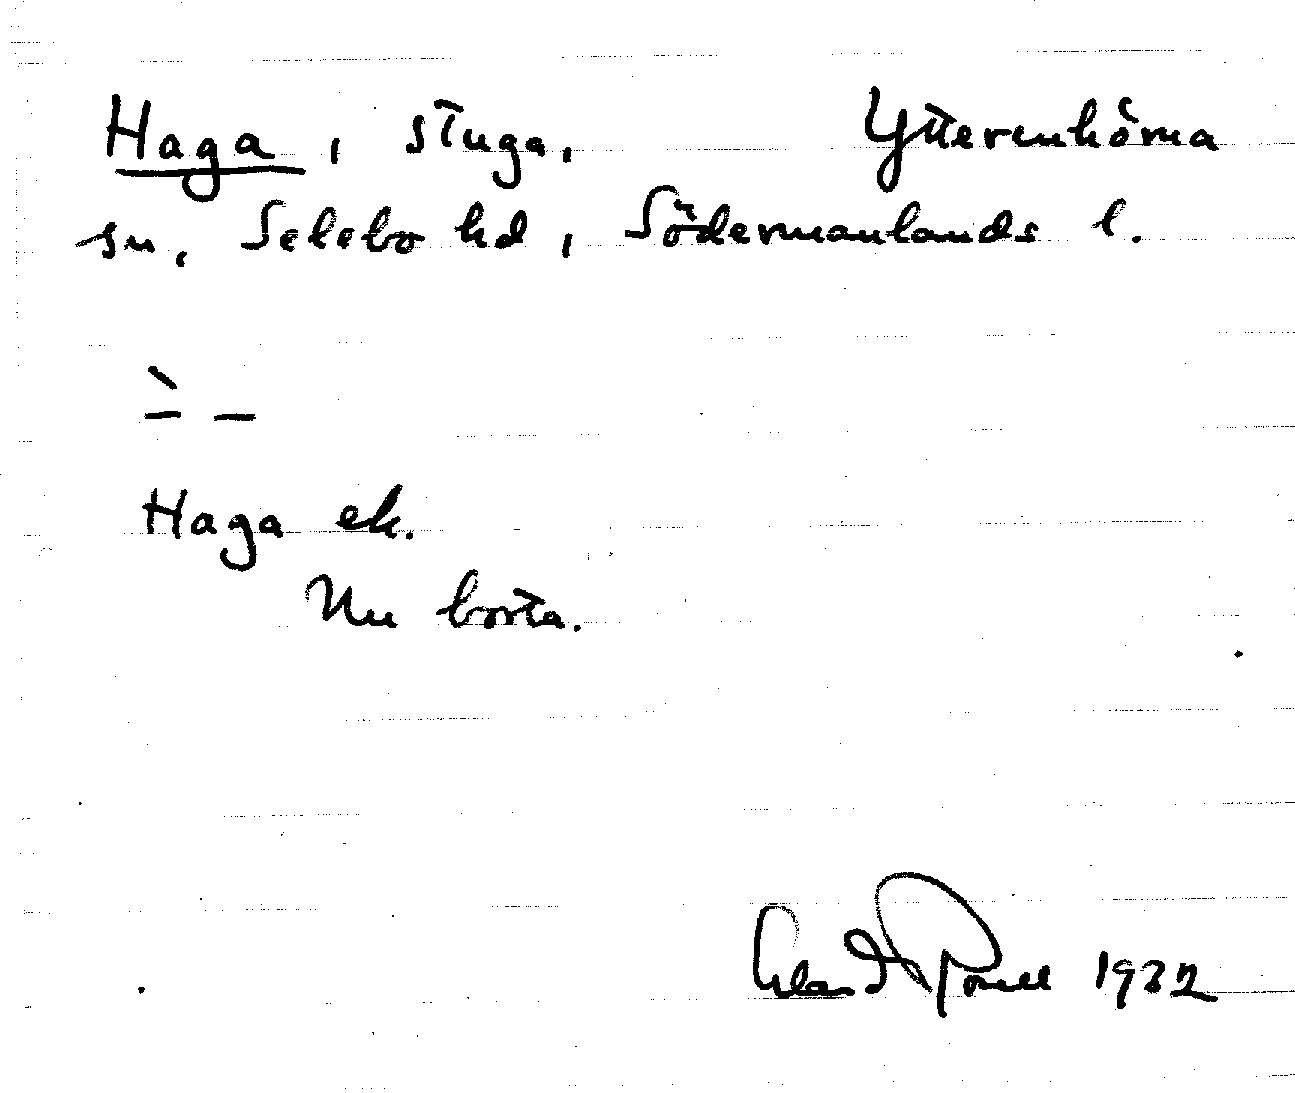 Haga, stuga, Ytterenhörna
sn, Selebo hd, Södermanlands l.
Haga ek.
Nu borta.
1932